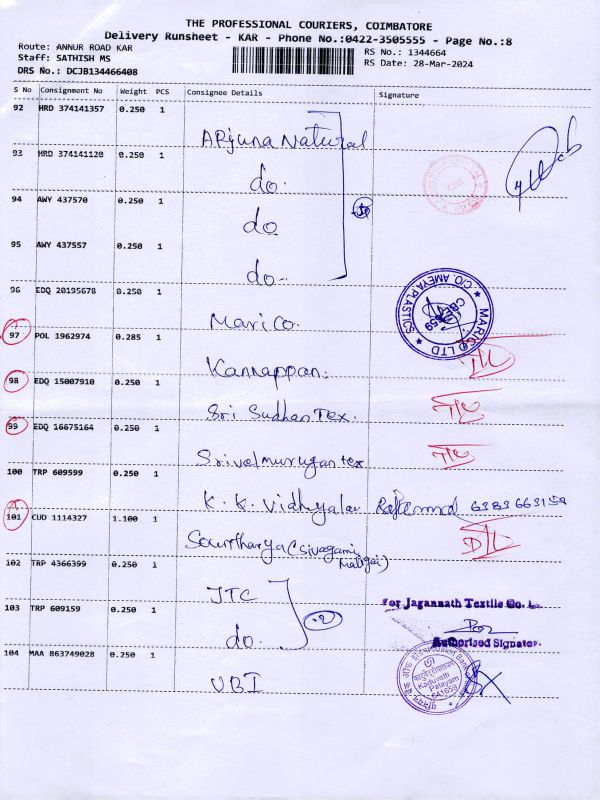 THE PROFESSIONAL COURIERS, COIMBATORE
Delivery Runsheet - KAR - Phone No.:0422-3505555 - Page No.:8
Route: ANNUR ROAD KAR
Staff: SATHISH MS
DRS No.: DCJB134466408
RS No.: 1344664
RS Date: 28-Mar-2024
S No Consignment No Weight PCS Consignee Details Signature
92 HRD 374141357 0.250 1 Arjuna Natural
93 HRD 374141120 0.250 1 do.
94 AWY 437570 0.250 1 do
95 AWY 437557 0.250 1 do-
96 EDQ 20195678 0.250 1 Marico.
MARICO LTD ★ C/O. AMEYA PLASTICS ★
97 POL 1962974 0.285 1 Kannappan. D/L
98 EDQ 15007910 0.250 1 Sri Sudhan Tex.
99 EDQ 16675164 0.250 1 Srivelmurugan tex
100 TRP 609599 0.250 1 K.K. Vidhyalay 6383663158
101 CUD 1114327 1.100 1 Sowtharya (Sivagami Maligai) D/L
102 TRP 4366399 0.250 1 JTC
103 TRP 609159 0.250 1 do. 2
For Jagannath Textile Co. L
Authorised Signator
104 MAA 863749028 0.250 1 UBI
Union Bank
Kaduvetti
Palayam